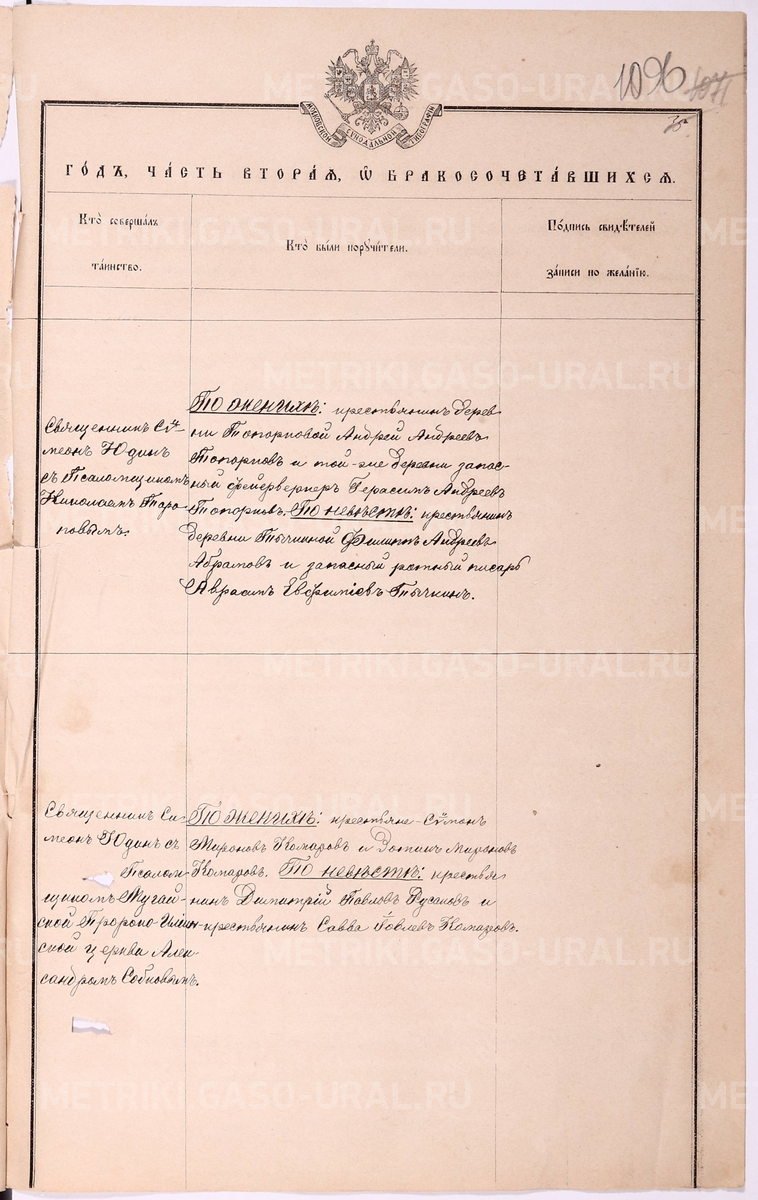 METRIKI.GASO-URAL.RU
1096
МОСКОВСКОЙ СѴНОДАЛЬНОЙ ТИПОГРАФІИ
ГО́ДЪ, ЧА́СТЬ ВТОРА́Я, Ѡ҆ БРАКОСОЧЕТА́ВШИХСЯ.
Кто̀ соверша́лъ
та́инство.
Кто̀ бы́ли порꙋчи́тели.
По́дпись свидѣ́телей
за́писи по жела́нїю.
Священникъ Си-
меонъ Юдинъ
съ Псаломщикомъ
Николаемъ Торо-
повымъ.
По женихѣ: крестьянинъ дерев-
ни Топорковой Андрей Андреевъ
Топорковъ и той-же деревни запас-
ный фейерверкеръ Герасимъ Андреев
Топорковъ. По невѣстѣ: крестьянинъ
деревни Тычкиной Филиппъ Андреевъ
Абрамовъ и запасный ротный писарь
Аврамъ Евфиміевъ Тычкинъ.
Священникъ Си-
меонъ Юдинъ съ
Псалом
щикомъ Мугай-
ской Пророко-Илiин-
ской церкви Алек-
сандромъ Собковымъ.
По женихѣ: крестьяне Сѵмонъ
Мироновъ Комаровъ и Зотикъ Мироновъ
Комаровъ. По невѣстѣ: крестья-
нинъ Димитрій Павловъ Русаковъ и
крестьянинъ Савва Іовлевъ